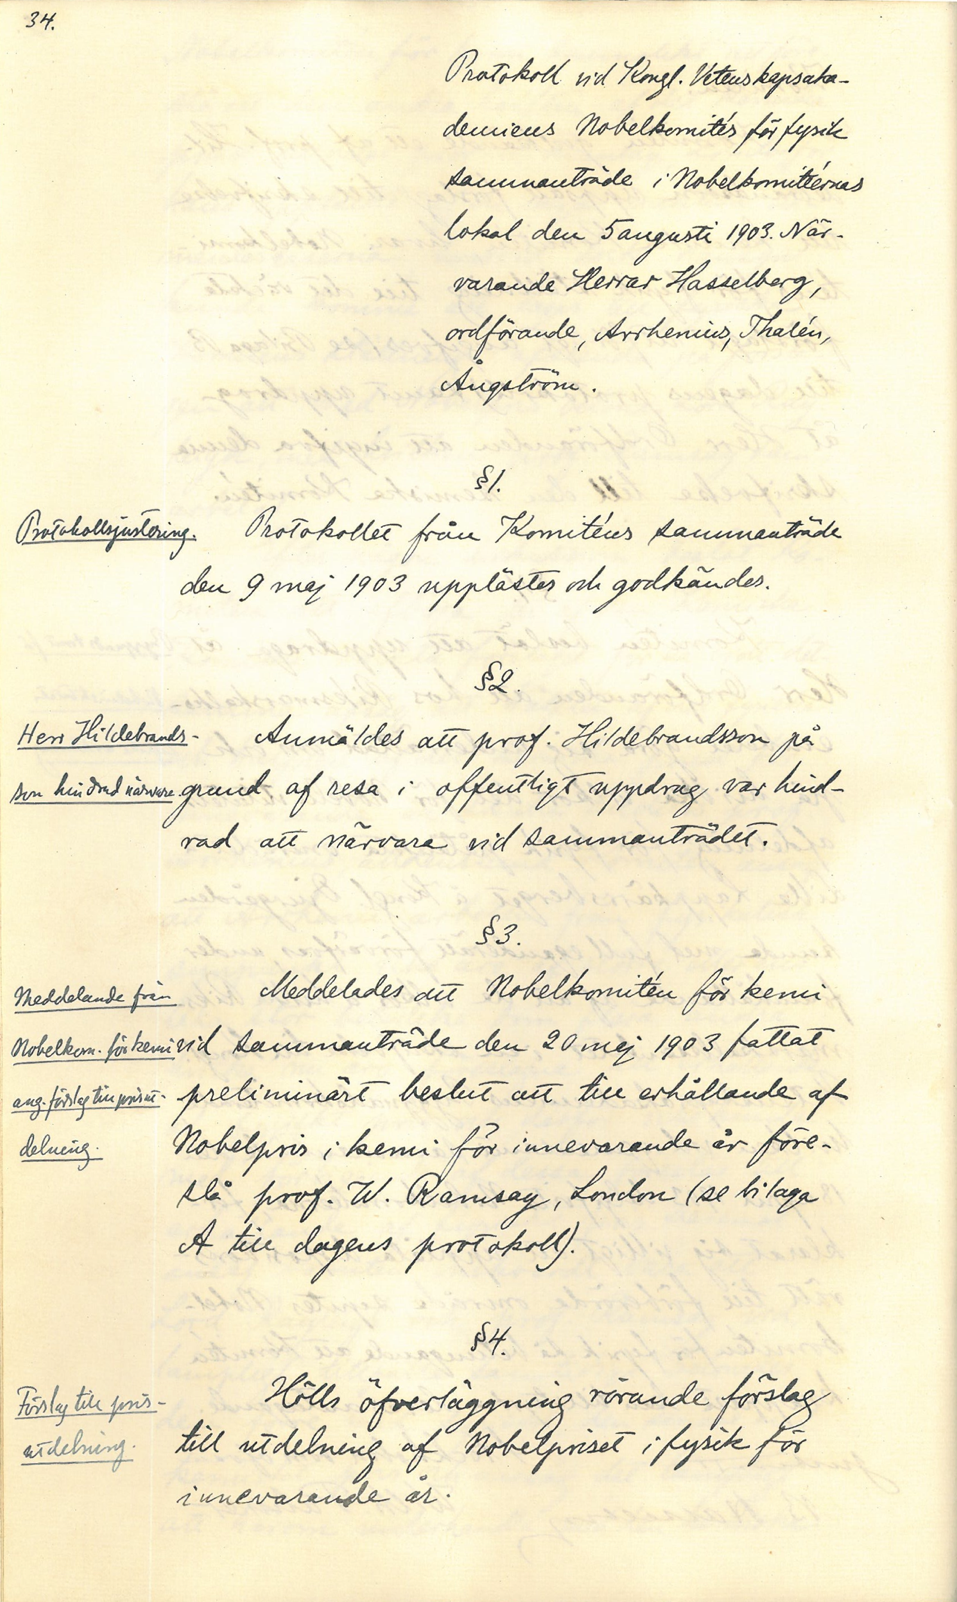 34.
Protokoll vid Kongl. Vetenskapsaka-
demiens Nobelkomités för fysik
sammanträde i Nobelkomitéernas
lokal den 5 augusti 1903. När-
varande Herrar Hasselberg,
ordförande, Arrhenius, Thalén,
Ångström.
§1.
Protokollsjustering. Protokollet från Komiténs sammanträde
den 9 maj 1903 upplästes och godkändes.
§2.
Herr Hildebrands- Anmäldes att prof. Hildebrandsson på
son hindrad närvara. grund af resa i offentligt uppdrag var hind-
rad att närvara vid sammanträdet.
§3.
Meddelande från Meddelades att Nobelkomitén för kemi
Nobelkom. för kemi vid sammanträde den 20 maj 1903 fattat
ang. förslag till prisut- preliminärt beslut att till erhållande af
delning. Nobelpris i kemi för innevarande år före-
slå prof. W. Ramsay, London (se bilaga
A till dagens protokoll).
§4.
Förslag till pris- Hölls öfverläggning rörande förslag
utdelning. till utdelning af Nobelpriset i fysik för
innevarande år.